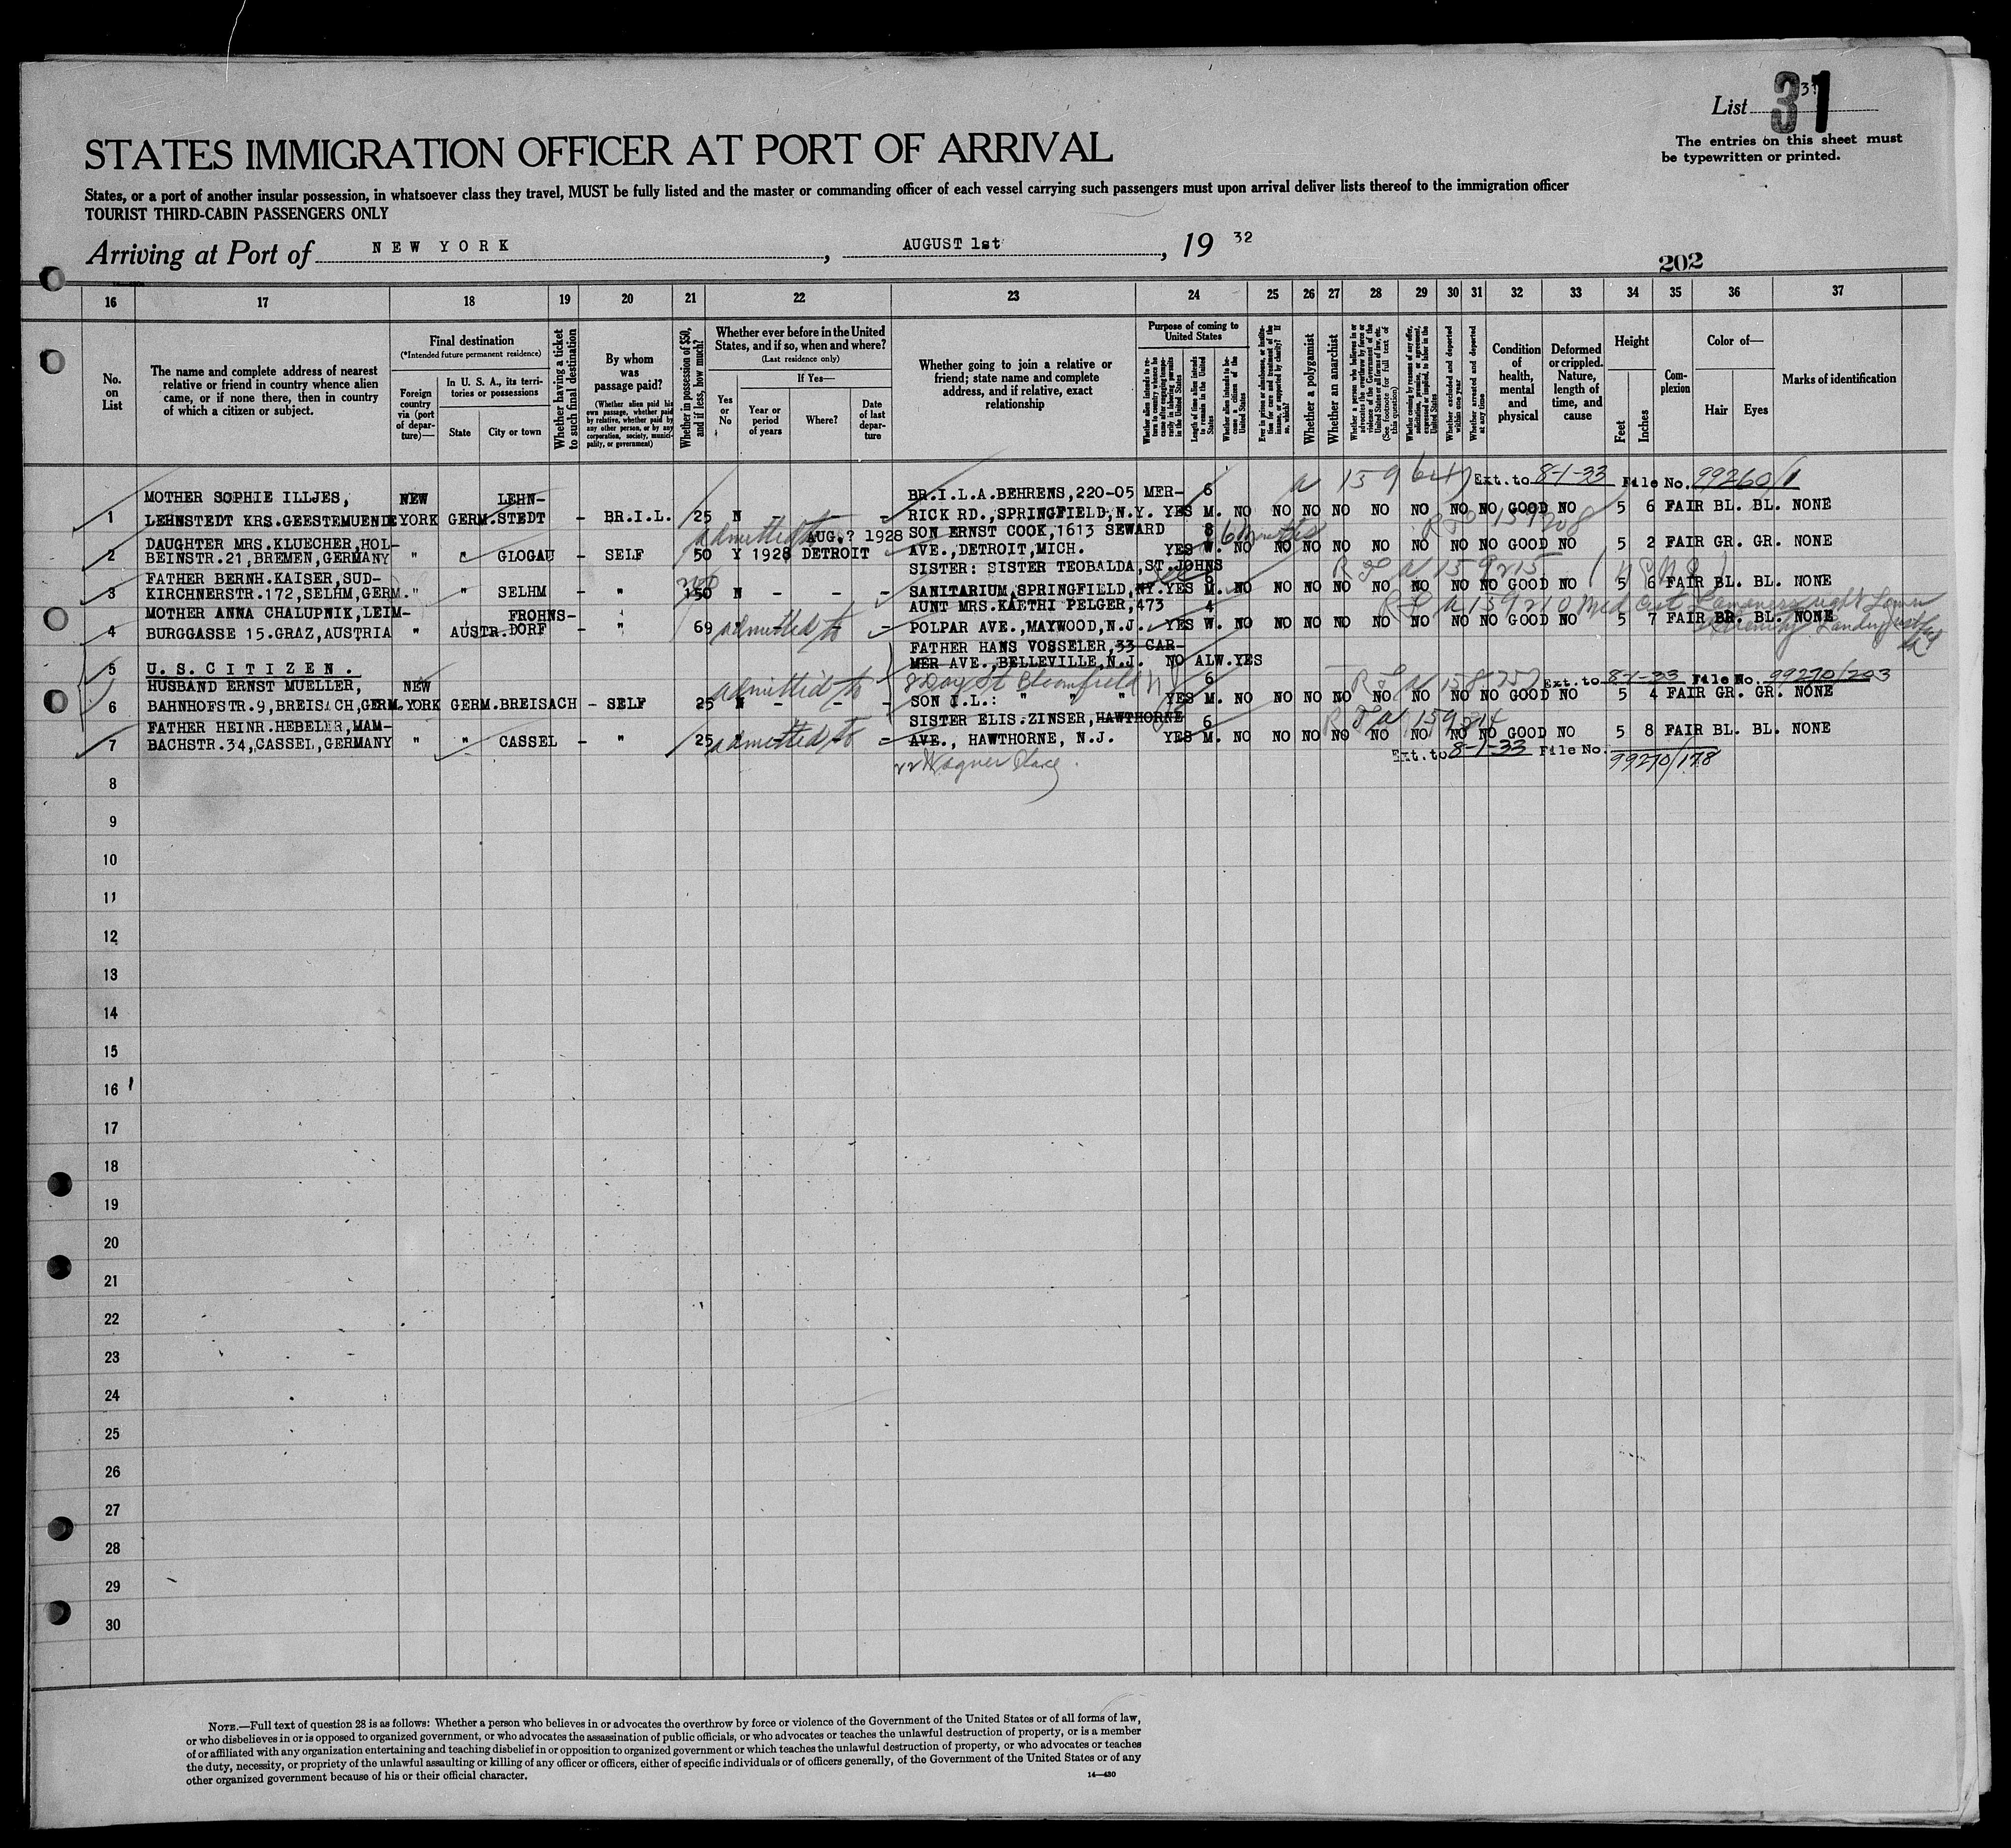 List 31
The entries on this sheet must
be typewritten or printed.
STATES IMMIGRATION OFFICER AT PORT OF ARRIVAL
States, or a port of another insular possession, in whatsoever class they travel, MUST be fully listed and the master or commanding officer of each vessel carrying such passengers must upon arrival deliver lists thereof to the immigration officer
TOURIST THIRD-CABIN PASSENGERS ONLY
Arriving at Port of NEW YORK, AUGUST 1st, 19 32
202
16 17 18 19 20 21 22 23 24 25 26 27 28 29 30 31 32 33 34 35 36 37
No. on List
The name and complete address of nearest
relative or friend in country whence alien
came, or if none there, then in country
of which a citizen or subject.
Final destination
(*Intended future permanent residence)
Foreign country via (port of departure)—
In U. S. A., its territories or possessions
State
City or town
Whether having a ticket to such final destination
By whom was passage paid?
(Whether alien paid his own passage, whether paid by relative, whether paid by any other person, or by any corporation, society, municipality, or government)
Whether in possession of $50, and if less, how much?
Whether ever before in the United
States, and if so, when and where?
(Last residence only)
If Yes—
Yes or No
Year or period of years
Where?
Date of last departure
Whether going to join a relative or
friend; state name and complete
address, and if relative, exact
relationship
Purpose of coming to United States
Whether alien intends to return to country whence he came after engaging temporarily in laboring pursuits in the United States
Length of time alien intends to remain in the United States
Whether alien intends to become a citizen of the United States
Ever in prison or almshouse, or institution for care and treatment of the insane, or supported by charity? If so, which?
Whether a polygamist
Whether an anarchist
Whether a person who believes in or advocates the overthrow by force or violence of the Government of the United States or all forms of law, etc. (See footnote for full text of this question)
Whether coming by reasons of any offer, solicitation, promise, or agreement, expressed or implied, to labor in the United States
Whether excluded and deported within one year
Whether arrested and deported at any time
Condition of health, mental and physical
Deformed or crippled. Nature, length of time, and cause
Height
Feet
Inches
Complexion
Color of—
Hair
Eyes
Marks of identification
a 159641 Ext. to 8-1-33 File No. 99260/1
MOTHER SOPHIE ILLJES, NEW LEHN- BR.I.L.A.BEHRENS,220-05 MER- 6
1 LEHNSTEDT KRS.GEESTEMUENDE YORK GERM.STEDT - BR.I.L. 25 N - - - RICK RD.,SPRINGFIELD,N.Y. YES M. NO NO NO NO NO NO NO NO GOOD NO 5 6 FAIR BL. BL. NONE
DAUGHTER MRS.KLUECHER,HOL- admitted to AUG.? 1928 SON ERNST COOK,1613 SEWARD 8 6 Months
2 BEINSTR.21,BREMEN,GERMANY " " GLOGAU - SELF 50 Y 1928 DETROIT AVE.,DETROIT,MICH. YES W. NO NO NO NO NO NO NO NO GOOD NO 5 2 FAIR GR. GR. NONE
FATHER BERNH.KAISER,SUD- SISTER: SISTER TEOBALDA,ST.JOHNS 6
3 KIRCHNERSTR.172,SELHM,GERM. " " SELHM - " 150 N - - - SANITARIUM,SPRINGFIELD,NY. YES M. NO NO NO NO NO NO NO NO GOOD NO 5 6 FAIR BL. BL. NONE
MOTHER ANNA CHALUPNIK,LEIM- FROHNS- AUNT MRS.KAETHI PELGER,473 4
4 BURGGASSE 15.GRAZ,AUSTRIA " AUSTR.DORF - " 69 " admitted to - POLPAR AVE.,MAYWOOD,N.J. YES W. NO NO NO NO NO NO NO NO GOOD NO 5 7 FAIR BR. BL. NONE
FATHER HANS VOSSELER,33 CAR-
5 U.S.CITIZEN. MER AVE.,BELLEVILLE,N.J. NO ALW.YES
8 Day St Bloomfield N J
HUSBAND ERNST MUELLER, NEW admitted to 6 Ext. to 8-1-33 File No. 99270/203
6 BAHNHOFSTR.9,BREISACH,GERM. YORK GERM.BREISACH - SELF 25 N - - - SON I.L.: " " " YES M. NO NO NO NO NO NO NO NO GOOD NO 5 4 FAIR GR. GR. NONE
FATHER HEINR.HEBELER,MAM- SISTER ELIS.ZINSER,HAWTHORNE 6
7 BACHSTR.34,CASSEL,GERMANY " " CASSEL - " 25 " admitted to - AVE., HAWTHORNE, N.J. YES M. NO NO NO NO NO NO NO NO GOOD NO 5 8 FAIR BL. BL. NONE
22 Wagner Place Ext. to 8-1-33 File No. 99270/178
8
9
10
11
12
13
14
15
16
17
18
19
20
21
22
23
24
25
26
27
28
29
30
NOTE.—Full text of question 28 is as follows: Whether a person who believes in or advocates the overthrow by force or violence of the Government of the United States or of all forms of law,
or who disbelieves in or is opposed to organized government, or who advocates the assassination of public officials, or who advocates or teaches the unlawful destruction of property, or is a member
of or affiliated with any organization entertaining and teaching disbelief in or opposition to organized government or which teaches the unlawful destruction of property, or who advocates or teaches
the duty, necessity, or propriety of the unlawful assaulting or killing of any officer or officers, either of specific individuals or of officers generally, of the Government of the United States or of any
other organized government because of his or their official character.
14—430